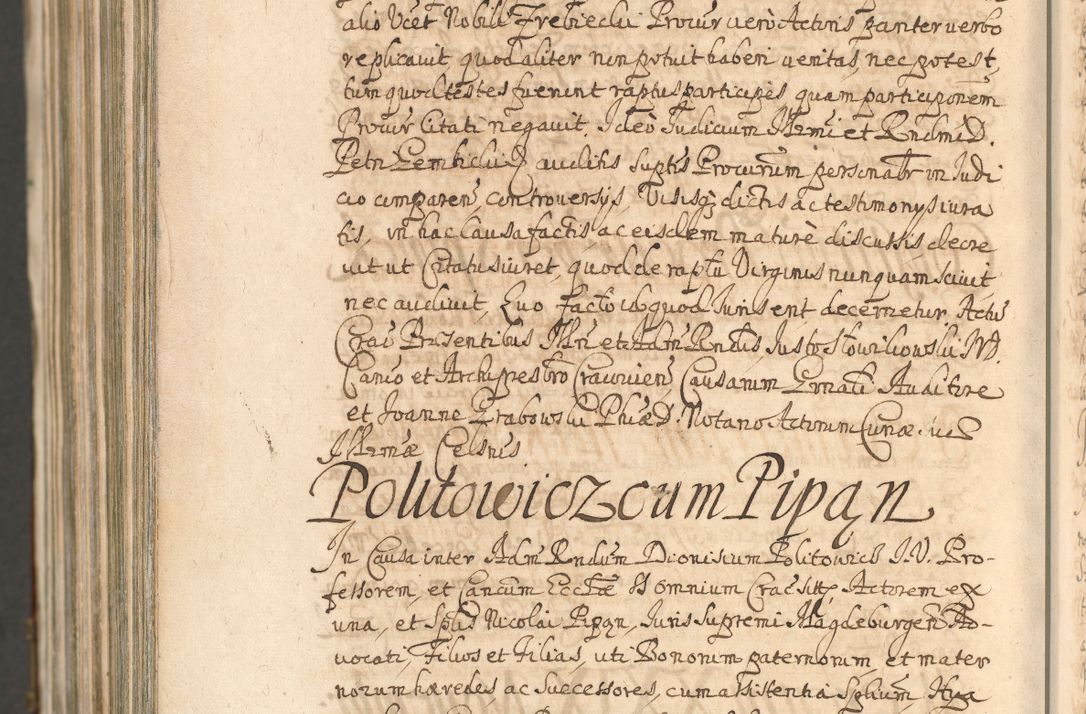 alio Ucet Nobili Trebiecki Procur vero Actoris pariter verbo
replicavit, quod aliter non potuit haberi veritas, nec potest,
tum quod testes fuerint raptus participes, quam participonem
Procur Citati negavit. Ideo Judicium Illrmi et Rndmi D.
Petri Gembicki D auditis suptis Procurum personalr in Judi
cio comparen, controversijs, Visisq dictis ac testimonys iura
tis, in hac Causa factis, ac eisdem mature discussis decre
vit ut Citatus iuret, quod de raptu Virginis nunquam scivit
nec audivit, Quo facto id quod Juris erit decernetur. Actis
Crac Præsentibus Illri et Adm Rndis Justo Słowikowski JVD.
Canco et Archipresbro Cracovien, Causarum Grnali Auditore
et Joanne Grabowski Phiæ D. Notario Actorum Curiæ suæ
Illrmæ Celsnis
Politowicz cum Pipan
In Causa inter Adm Rndum Dionisium Politowicz J.V. Pro-
fessorem, et Cancum Eccæ SS omnium Crac sitt, Actorem ex
una, et Splis Nicolai Pipan, Juris Supremi Magdeburgen Ad-
vocati, Filios et Filias, uti Bonorum paternorum, et mater
norum hæredes ac Successores, cum assistentia Splium Hya